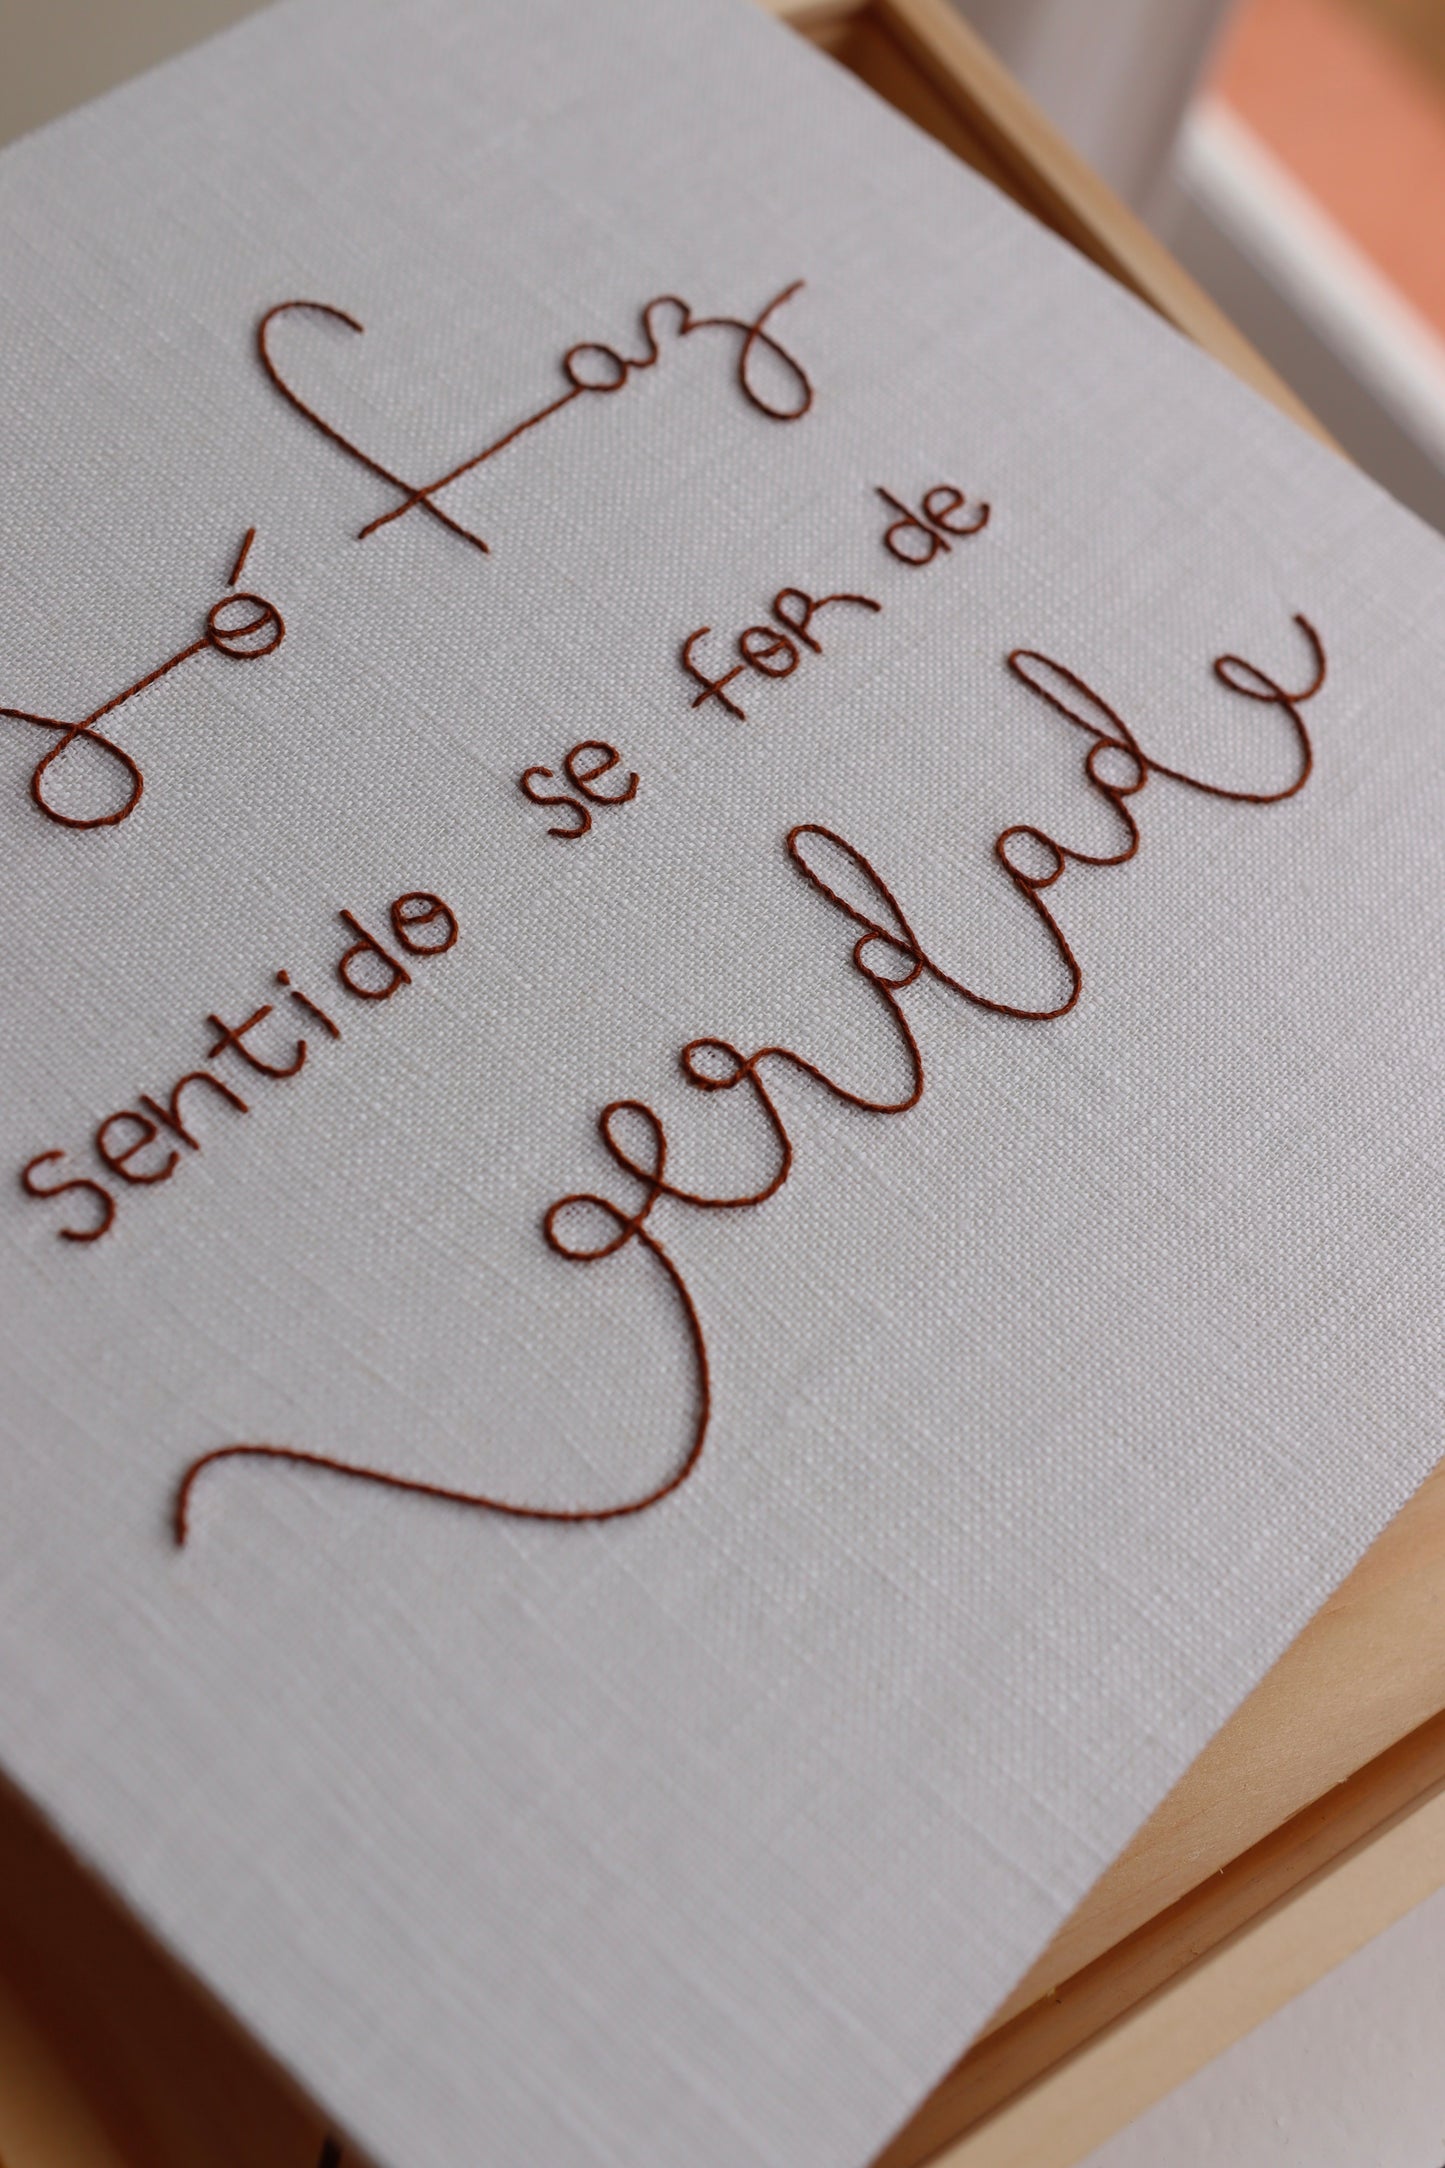 Só faz
sentido se for de
verdade